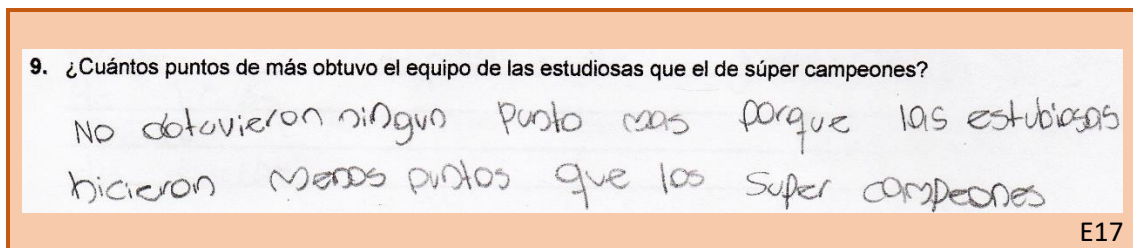 9. ¿Cuántos puntos de más obtuvo el equipo de las estudiosas que el de súper campeones?
No obtuvieron ningun punto mas porque las estubiosas
hicieron menos puntos que los super campeones
E17